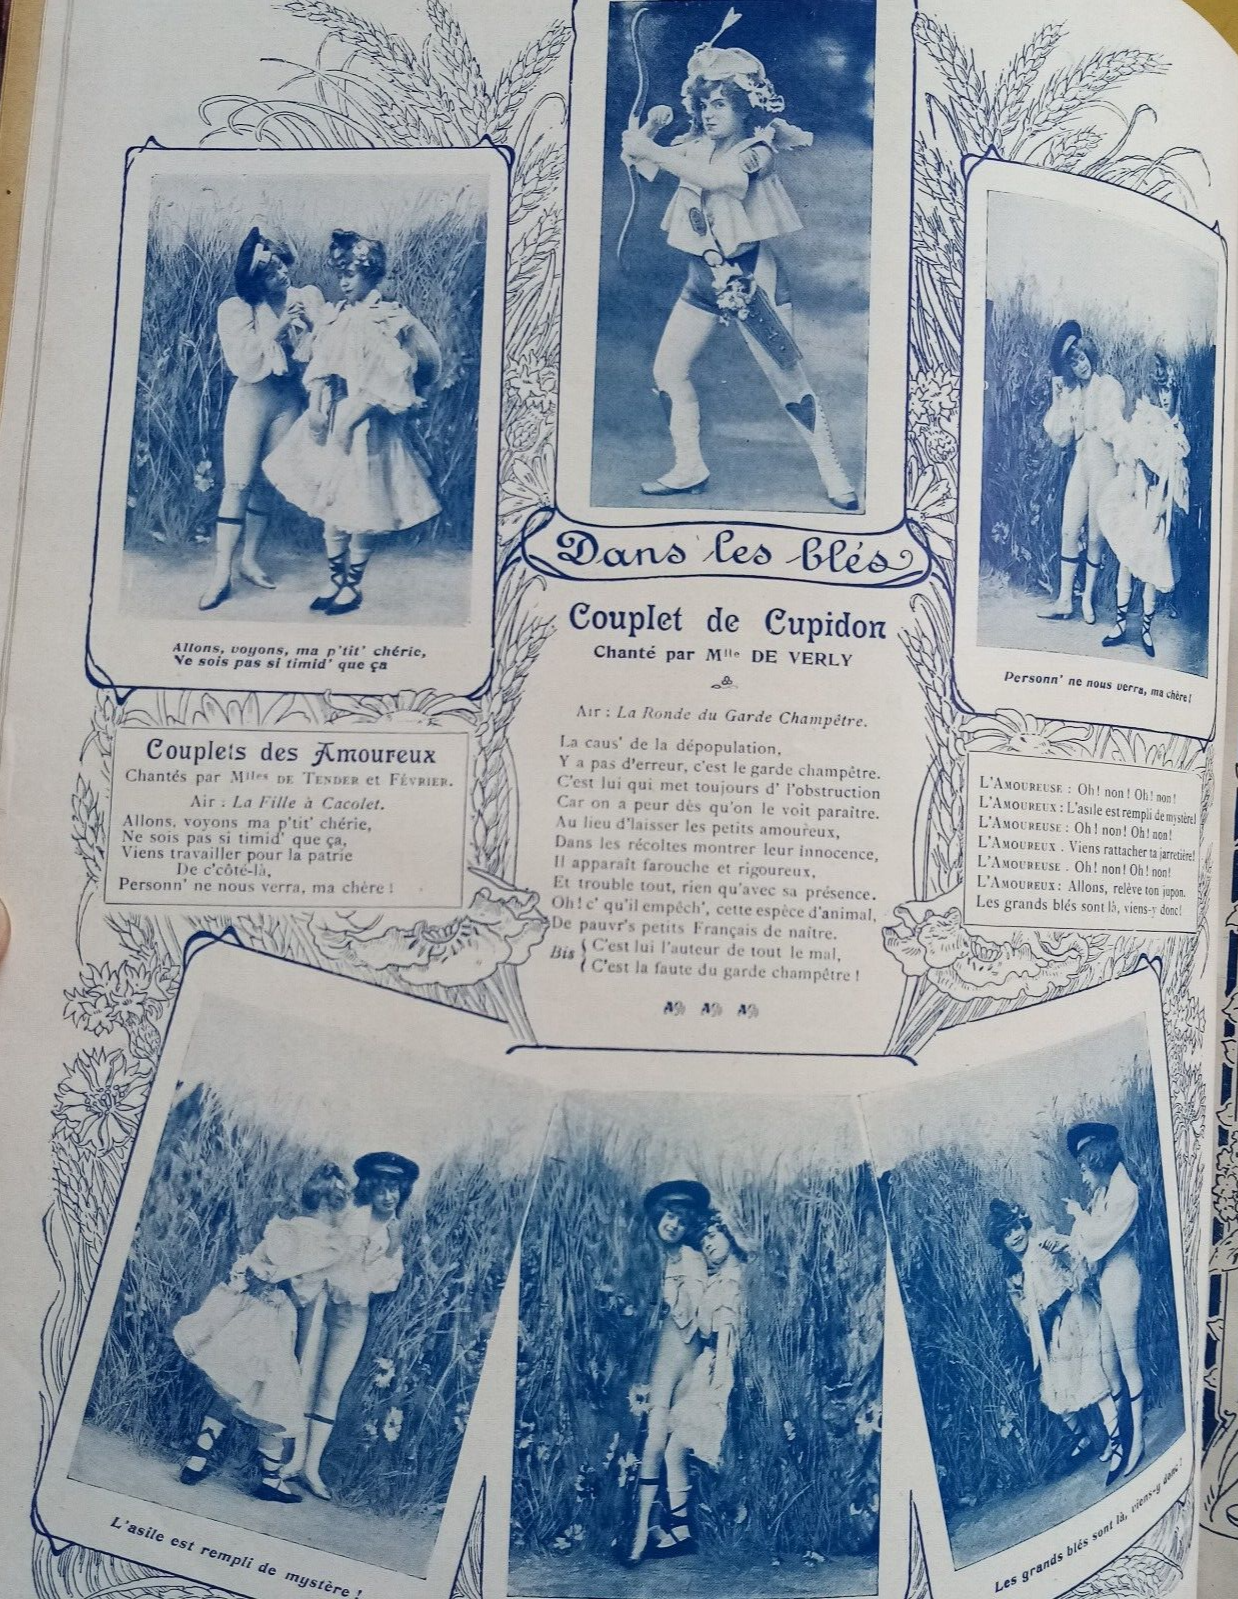 Allons, voyons, ma p'tit' chérie,
Ne sois pas si timid' que ça
Dans les blés
Personn' ne nous verra, ma chère !
Couplets des Amoureux
Chantés par Mlles DE TENDER et FÉVRIER.
Air : La Fille à Cacolet.
Allons, voyons ma p'tit' chérie,
Ne sois pas si timid' que ça,
Viens travailler pour la patrie
De c'côté-là,
Personn' ne nous verra, ma chère !
Couplet de Cupidon
Chanté par Mlle DE VERLY
Air : La Ronde du Garde Champêtre.
La caus' de la dépopulation,
Y a pas d'erreur, c'est le garde champêtre.
C'est lui qui met toujours d' l'obstruction
Car on a peur dès qu'on le voit paraître.
Au lieu d'laisser les petits amoureux,
Dans les récoltes montrer leur innocence,
Il apparaît farouche et rigoureux,
Et trouble tout, rien qu'avec sa présence.
Oh! c' qu'il empêch', cette espèce d'animal,
De pauvr's petits Français de naître.
Bis { C'est lui l'auteur de tout le mal,
C'est la faute du garde champêtre !
L'AMOUREUSE : Oh! non ! Oh! non!
L'AMOUREUX : L'asile est rempli de mystère!
L'AMOUREUSE : Oh! non! Oh! non!
L'AMOUREUX . Viens rattacher ta jarretière!
L'AMOUREUSE . Oh! non! Oh! non!
L'AMOUREUX : Allons, relève ton jupon.
Les grands blés sont là, viens-y donc!
L'asile est rempli de mystère !
Les grands blés sont là, viens-y donc !